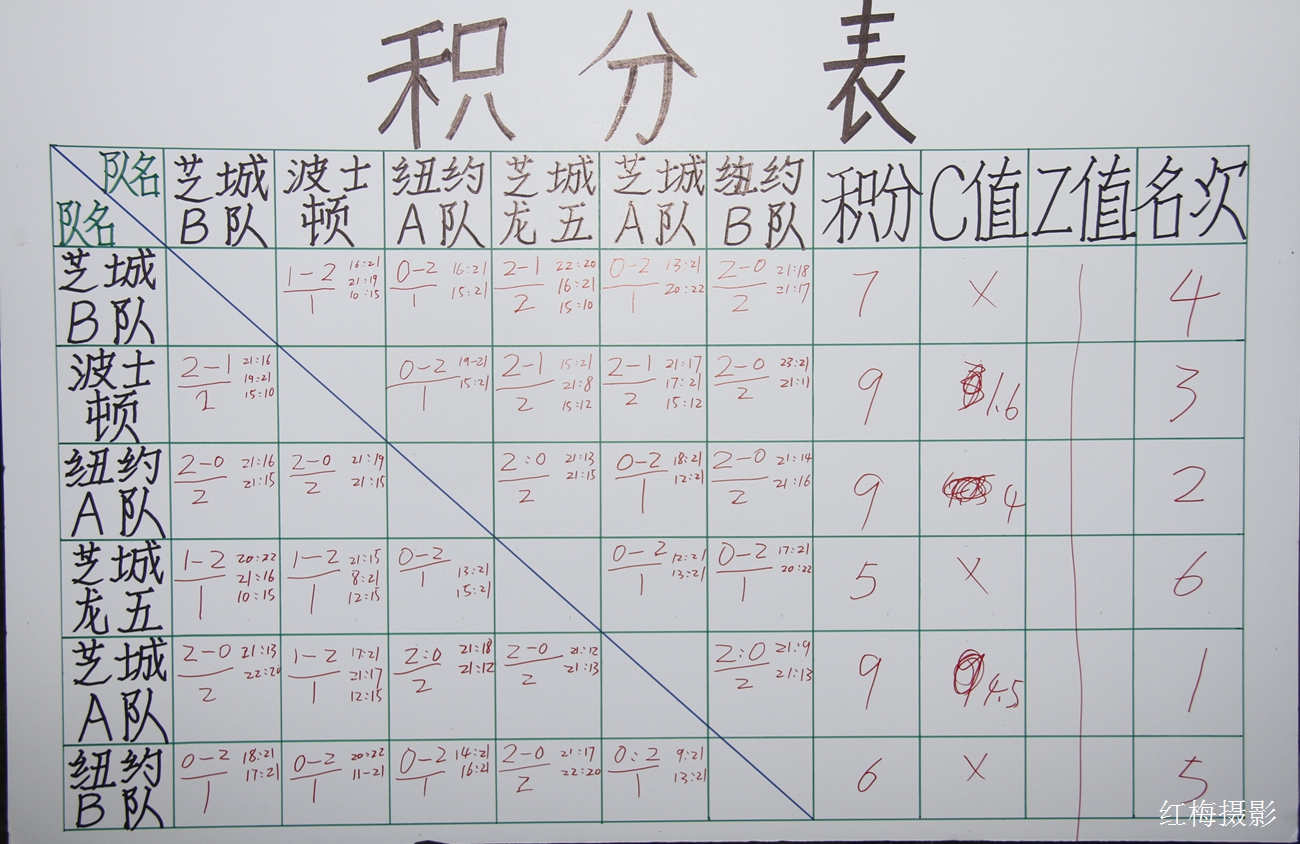 积分表
队名 芝城 波士 纽约 芝城 芝城 纽约 积分 C值 Z值 名次
队名 B队 顿 A队 龙五 A队 B队
芝城 1-2 16:21 0-2 16:21 2-1 22:20 0-2 13:21 2-0 21:18 7 X 4
21:19 16:21
B队 1 10:15 1 15:21 2 15:10 1 20:22 2 21:17
波士 2-1 21:16 0-2 19-21 2-1 15:21 2-1 21:17 2-0 23:21 9 1.6 3
19:21 21:8 17:21
顿 2 15:10 1 15:21 2 15:12 2 15:12 2 21:11
纽约 2-0 21:16 2-0 21:19 2:0 21:13 0-2 18:21 2-0 21:14 9 4 2
A队 2 21:15 2 21:15 2 21:15 1 12:21 2 21:16
芝城 1-2 20:22 1-2 21:15 0-2 13:21 0-2 12:21 0-2 17:21 5 X 6
21:16 8:21
龙五 1 10:15 1 12:15 1 15:21 1 13:21 1 20:22
芝城 2-0 21:13 1-2 17:21 2:0 21:18 2-0 21:12 2:0 21:9 9 4.5 1
21:17
A队 2 22:20 1 12:15 2 21:12 2 21:13 2 21:13
纽约 0-2 18:21 0-2 20:22 0-2 14:21 2-0 21:17 0:2 9:21 6 X 5
B队 1 17:21 1 11-21 1 16:21 2 22:20 1 13:21
红梅摄影